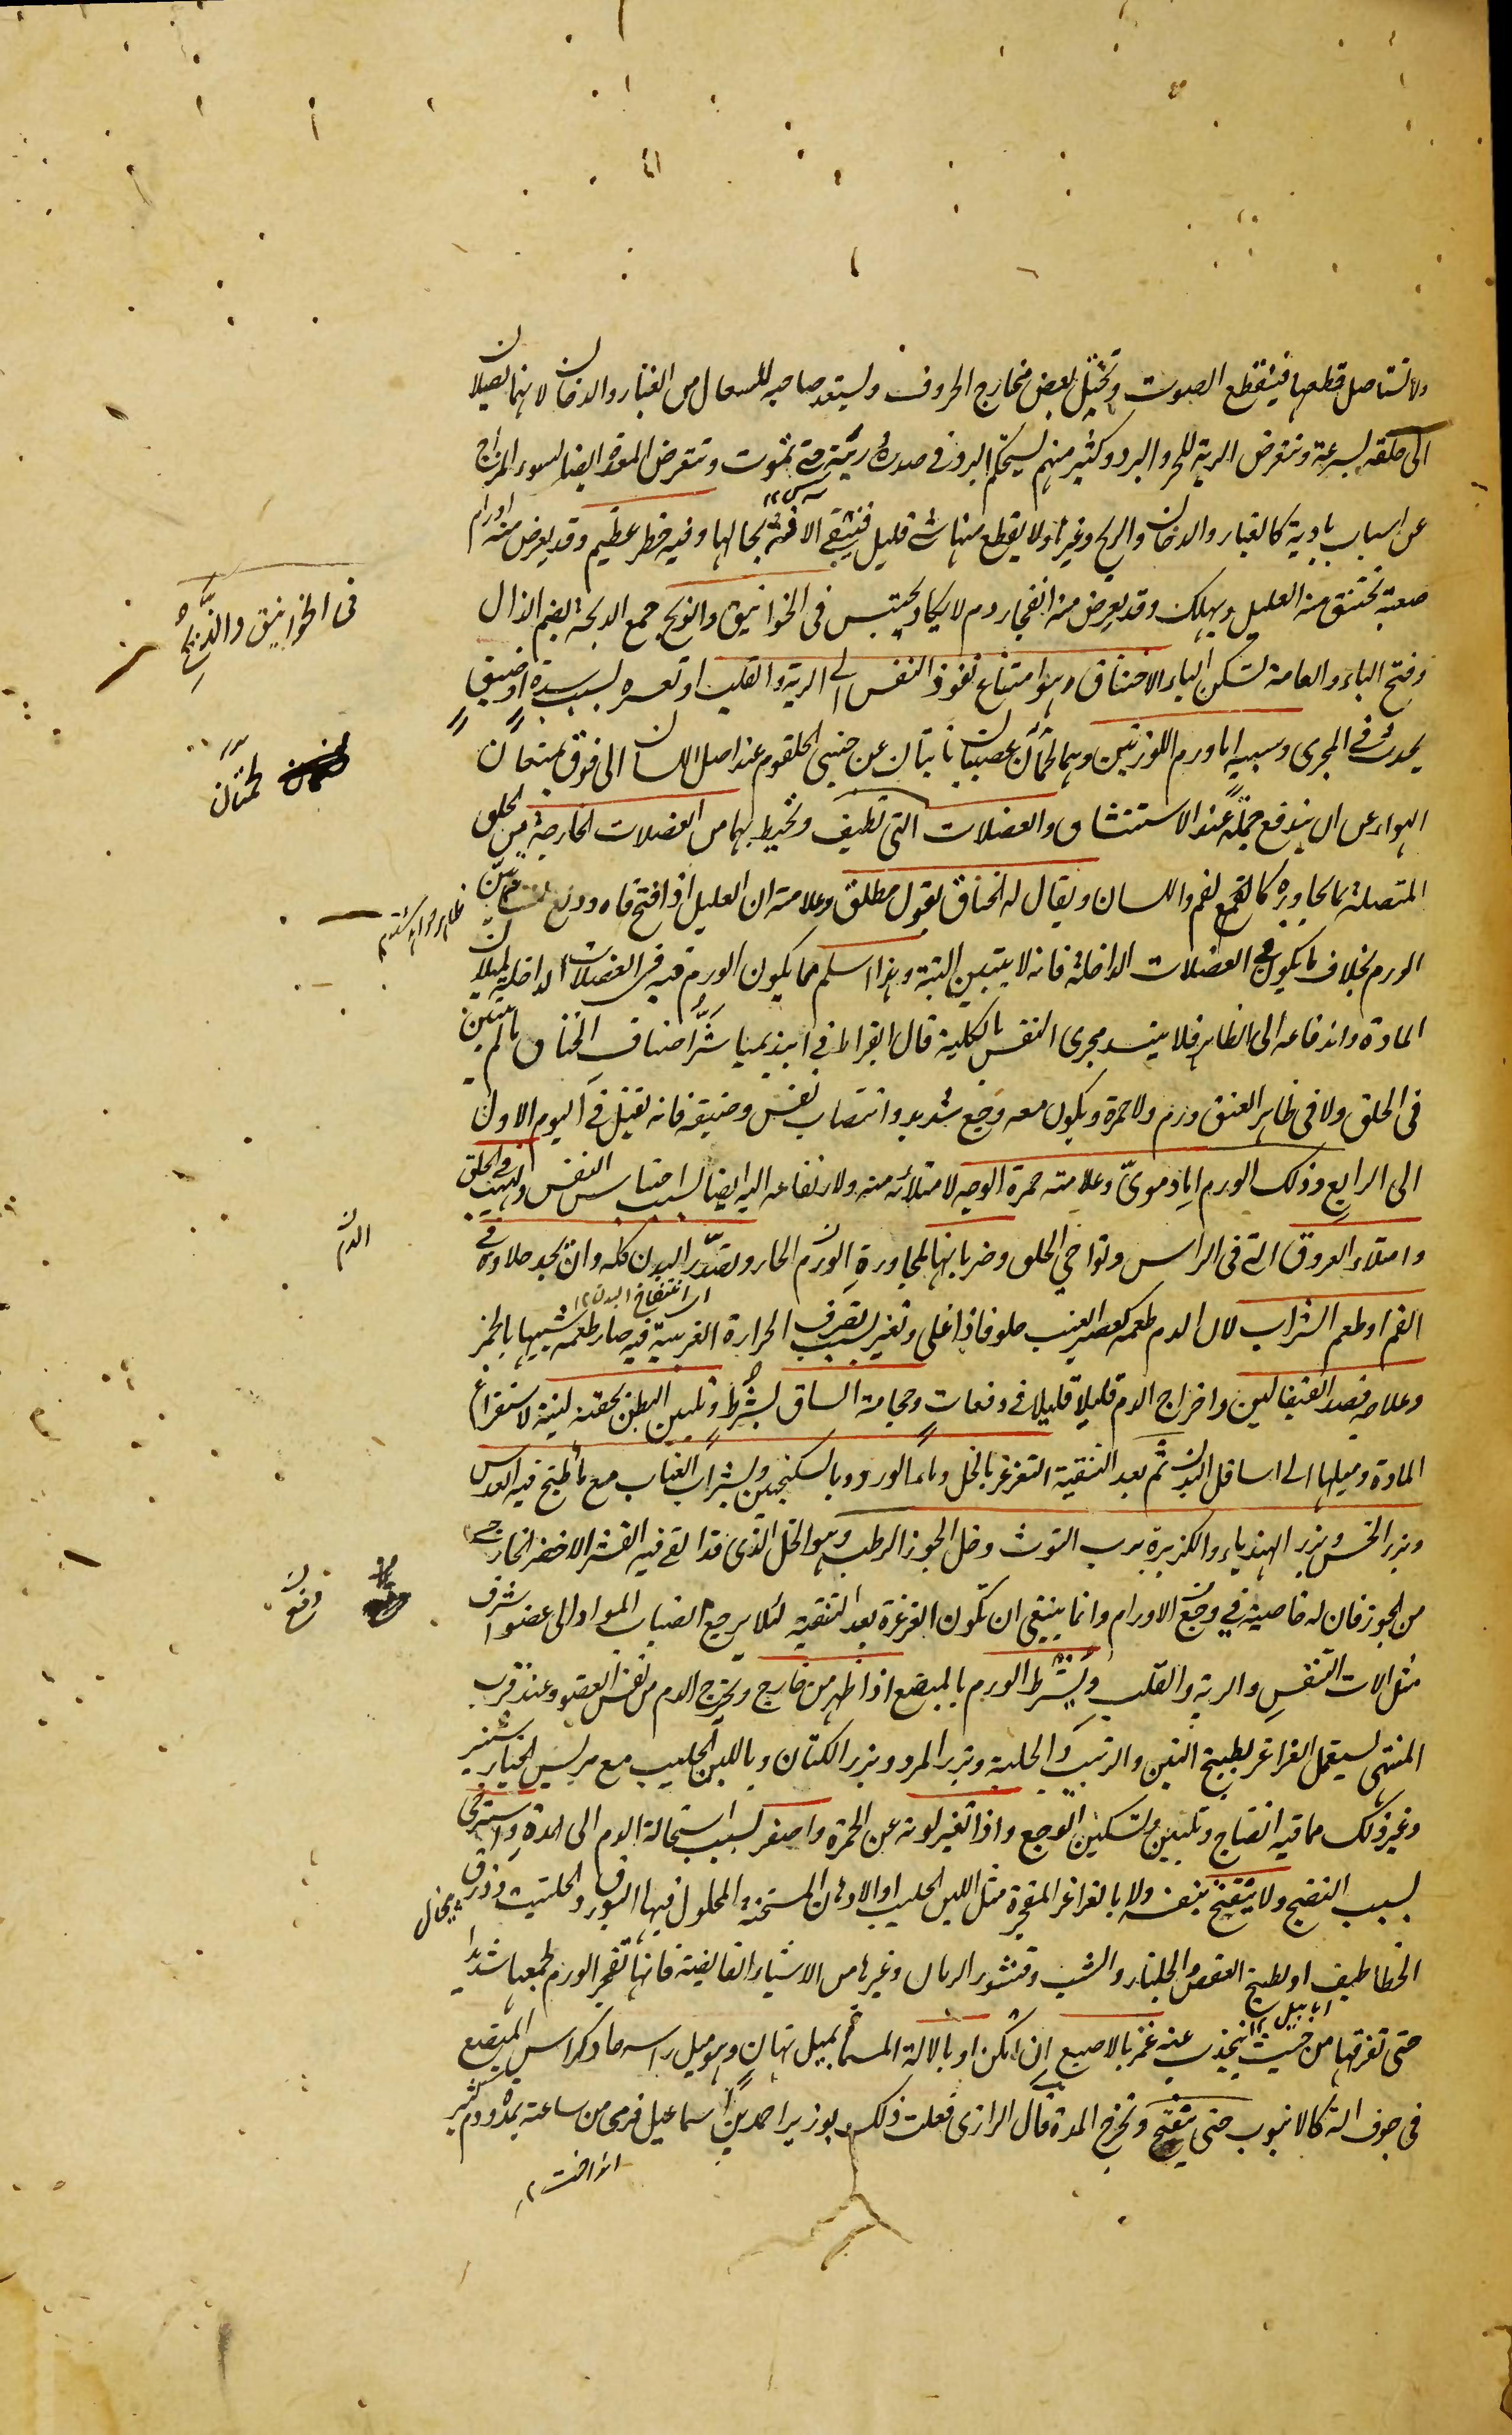 ولا تستاصل قطعها فينقطع الصوت وتختل بعض مخارج الحروف ويستعد صاحبه للسعال من الغبار والدخان لانهما يصلان
الى حلقه بسرعة وتتعرض الرية للحر والبرد وكثير منهم يستحكم البرد في صدره وريته حتى تموت وتتعرض المعدة ايضا لسوء المزاج
عن اسباب بادية كالغبار والدخان والريح وغيرها ولا يقطع منها شئ قليل فتبقى الافة بحالها وفيه خطر عظيم وقد يعرض منه اورام
صعبة تختنق منه العليل ويهلك وقد يعرض منه انفجار دم لا يكاد يحتبس فى الخوانيق والذبح جمع الذبحة بضم الذال
وفتح الباء والعامة تسكن الباء الاختناق هو امتناع نفوذ النفس الى الرية والقلب او تعسره لسبب سدة او ضيق
يحدث في المجرى وسببه اما ورم اللوزتين وهما لحمتان عصبيتان نابتان عن جنبى الحلقوم عند اصل اللسان الى فوق يمنعان
الهواء عن ان يندفع جملة عند الاستنشاق والعضلات التى تطيف وتحيط بهما من العضلات الخارجة من الحلق
المتصلة بما يجاوره كالقمع لفم واللسان ويقال له الخناق بقول مطلق وعلامته ان العليل اذا فتح فاه ودلع لسانه تبين
الورم بخلاف ما يكون في العضلات الداخلة فانه لا يتبين البتة وهذا اسلم مما يكون الورم فيه فى العضلات الداخلة لميلان
المادة واندفاعه الى الظاهر فلا ينسد مجرى النفس بالكلية قال ابقراط في ابيذيميا شر اصناف الخناق ما لم يتبين
فى الحلق ولا فى ظاهر العنق ورم ولا حمرة ويكون معه وجع شديد وانتصاب نفس وضيقه فانه يقتل في اليوم الاول
الى الرابع وذلك الورم اما دموى وعلامته حمرة الوجه لامتلائه منه ولارتفاعه اليه ايضا لسبب احتباس النفس والتهب في الحلق
وامتلاء العروق التى فى الراس ونواحى الحلق وضربانها لمجاورة الورم الحار وتمدد البدن كله وان يجد حلاوة في
الفم او طعم الشراب لان الدم طعمه كعصير العنب حلو فاذا غلى وتغير بسبب تصرف الحرارة الغريبة فيه صار طعمه شبيها بالخمر
وعلاجه فصد القيفالين واخراج الدم قليلا قليلا في دفعات وحجامة الساق بشرط وتليين البطن بحقنة لينة لاستفراغ
المادة وميلها الى اسافل البدن ثم بعد التنقية التغرغر بالخل وماء الورد وبالسكنجبين وبشراب العناب مع ما طبخ فيه العدس
وبزر الخس وبزر الهندباء والكزبرة برب التوث وخل الجوز الرطب وهو الخل الذى قد القى فيه القشر الاخضر الخارجى
من الجوز فان له خاصية في دفع الاورام وانما ينبغى ان تكون الغرغرة بعد التنقية لئلا يرجع انصباب المواد الى عضو اشرف
مثل الات التنفس والرية والقلب ويشرط الورم بالمبضع اذا ظهر من خارج ويخرج الدم من نفس العضو وعند قرب
المنتهى يستعمل الغراغر بطبيخ التين والزبيب والحلبة وبزر المرو وبزر الكتان وباللبن الحليب مع مريس الخيار شنبر
وغير ذلك مما فيه انضاج وتليين وتسكين الوجع واذا تغير لونه عن الحمرة واصفر لسبب استحالة الدم الى المدة واسترخى
لسبب النضج ولا ينفتح بنفسه ولا بالغراغر المفجرة مثل اللبن الحليب او الادهان المسخنة المحلول فيها البورق والحلتيت وذرق
الخطاطيف او طبيخ العفص والجلنار والشب وقشور الرمان وغيرها من الاشياء القابضة فانها تفجر الورم لجمعها شديدا
حتى تفرقها من حيث ينجذب عنه غمز بالاصبع ان امكن او بالالة المسماة بميل تهان وهو ميل راسه حاد كراس المبضع
فى جوف الة كالانبوب حتى ينفتح وتخرج المدة قال الرازى فعلت ذلك بوزير احمد بن اسماعيل فرمى من ساعته بمدة ودم كثير
فى الخوانيق والذبحة
لحمتان
الدم
اى انتفاخ البدن ١٢
دفع
ابابيل ١٢